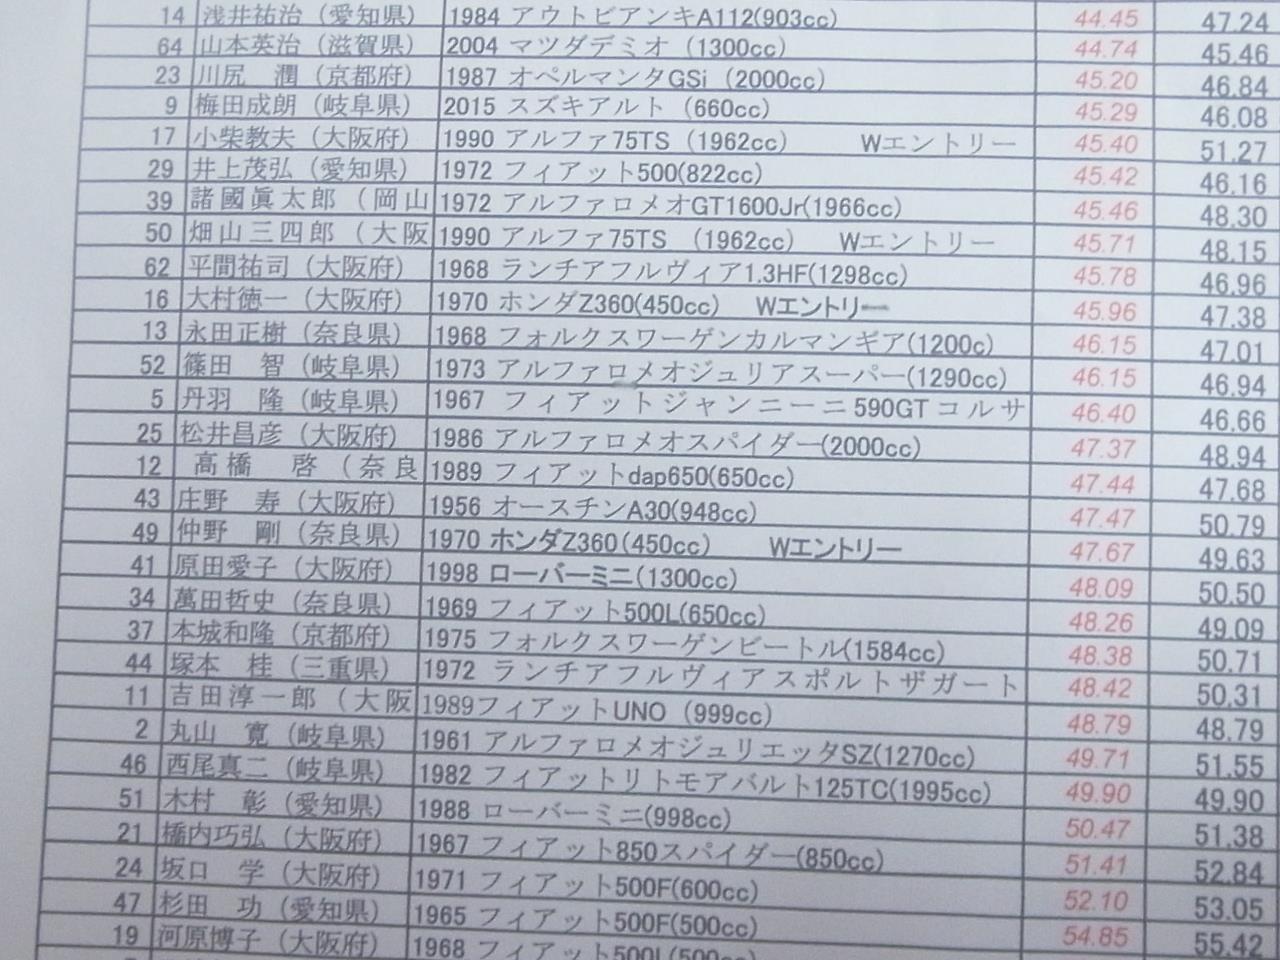 14 浅井祐治（愛知県） 1984 アウトビアンキA112(903cc) 44.45 47.24
64 山本英治（滋賀県） 2004 マツダデミオ（1300cc） 44.74 45.46
23 川尻　潤（京都府） 1987 オペルマンタGSi（2000cc） 45.20 46.84
9 梅田成朗（岐阜県） 2015 スズキアルト（660cc） 45.29 46.08
17 小柴教夫（大阪府） 1990 アルファ75TS（1962cc）　Wエントリー 45.40 51.27
29 井上茂弘（愛知県） 1972 フィアット500(822cc) 45.42 46.16
39 諸國眞太郎（岡山 1972 アルファロメオGT1600Jr(1966cc) 45.46 48.30
50 畑山三四郎（大阪 1990 アルファ75TS （1962cc）　Wエントリー 45.71 48.15
62 平間祐司（大阪府） 1968 ランチアフルヴィア1.3HF(1298cc) 45.78 46.96
16 大村徳一（大阪府） 1970 ホンダZ360(450cc)　Wエントリー 45.96 47.38
13 永田正樹（奈良県） 1968 フォルクスワーゲンカルマンギア(1200c) 46.15 47.01
52 篠田　智（岐阜県） 1973 アルファロメオジュリアスーパー(1290cc) 46.15 46.94
5 丹羽　隆（岐阜県） 1967 フィアットジャンニーニ590GTコルサ 46.40 46.66
25 松井昌彦（大阪府） 1986 アルファロメオスパイダー(2000cc) 47.37 48.94
12 高橋　啓（奈良 1989 フィアットdap650(650cc) 47.44 47.68
43 庄野　寿（大阪府） 1956 オースチンA30(948cc) 47.47 50.79
49 仲野　剛（奈良県） 1970 ホンダZ360（450cc）　Wエントリー 47.67 49.63
41 原田愛子（大阪府） 1998 ローバーミニ（1300cc） 48.09 50.50
34 萬田哲史（奈良県） 1969 フィアット500L(650cc) 48.26 49.09
37 本城和隆（京都府） 1975 フォルクスワーゲンビートル(1584cc) 48.38 50.71
44 塚本　桂（三重県） 1972 ランチアフルヴィアスポルトザガート 48.42 50.31
11 吉田淳一郎（大阪 1989フィアットUNO（999cc） 48.79 48.79
2 丸山　寛（岐阜県） 1961 アルファロメオジュリエッタSZ(1270cc) 49.71 51.55
46 西尾真二（岐阜県） 1982 フィアットリトモアバルト125TC(1995cc) 49.90 49.90
51 木村　彰（愛知県） 1988 ローバーミニ(998cc) 50.47 51.38
21 橋内巧弘（大阪府） 1967 フィアット850スパイダー(850cc) 51.41 52.84
24 坂口　学（大阪府） 1971 フィアット500F(600cc) 52.10 53.05
47 杉田　功（愛知県） 1965 フィアット500F(500cc) 54.85 55.42
19 河原博子（大阪府） 1968 フィアット500L(500cc)